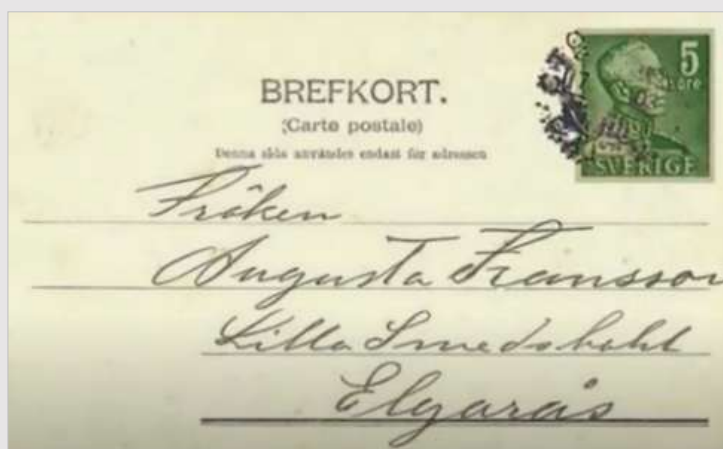 5
öre
BREFKORT.
(Carte postale)
Denna sida användes endast för adressen
SVERIGE
Fröken
Augusta Fransson
Lilla Smedsbohl
Elgarås